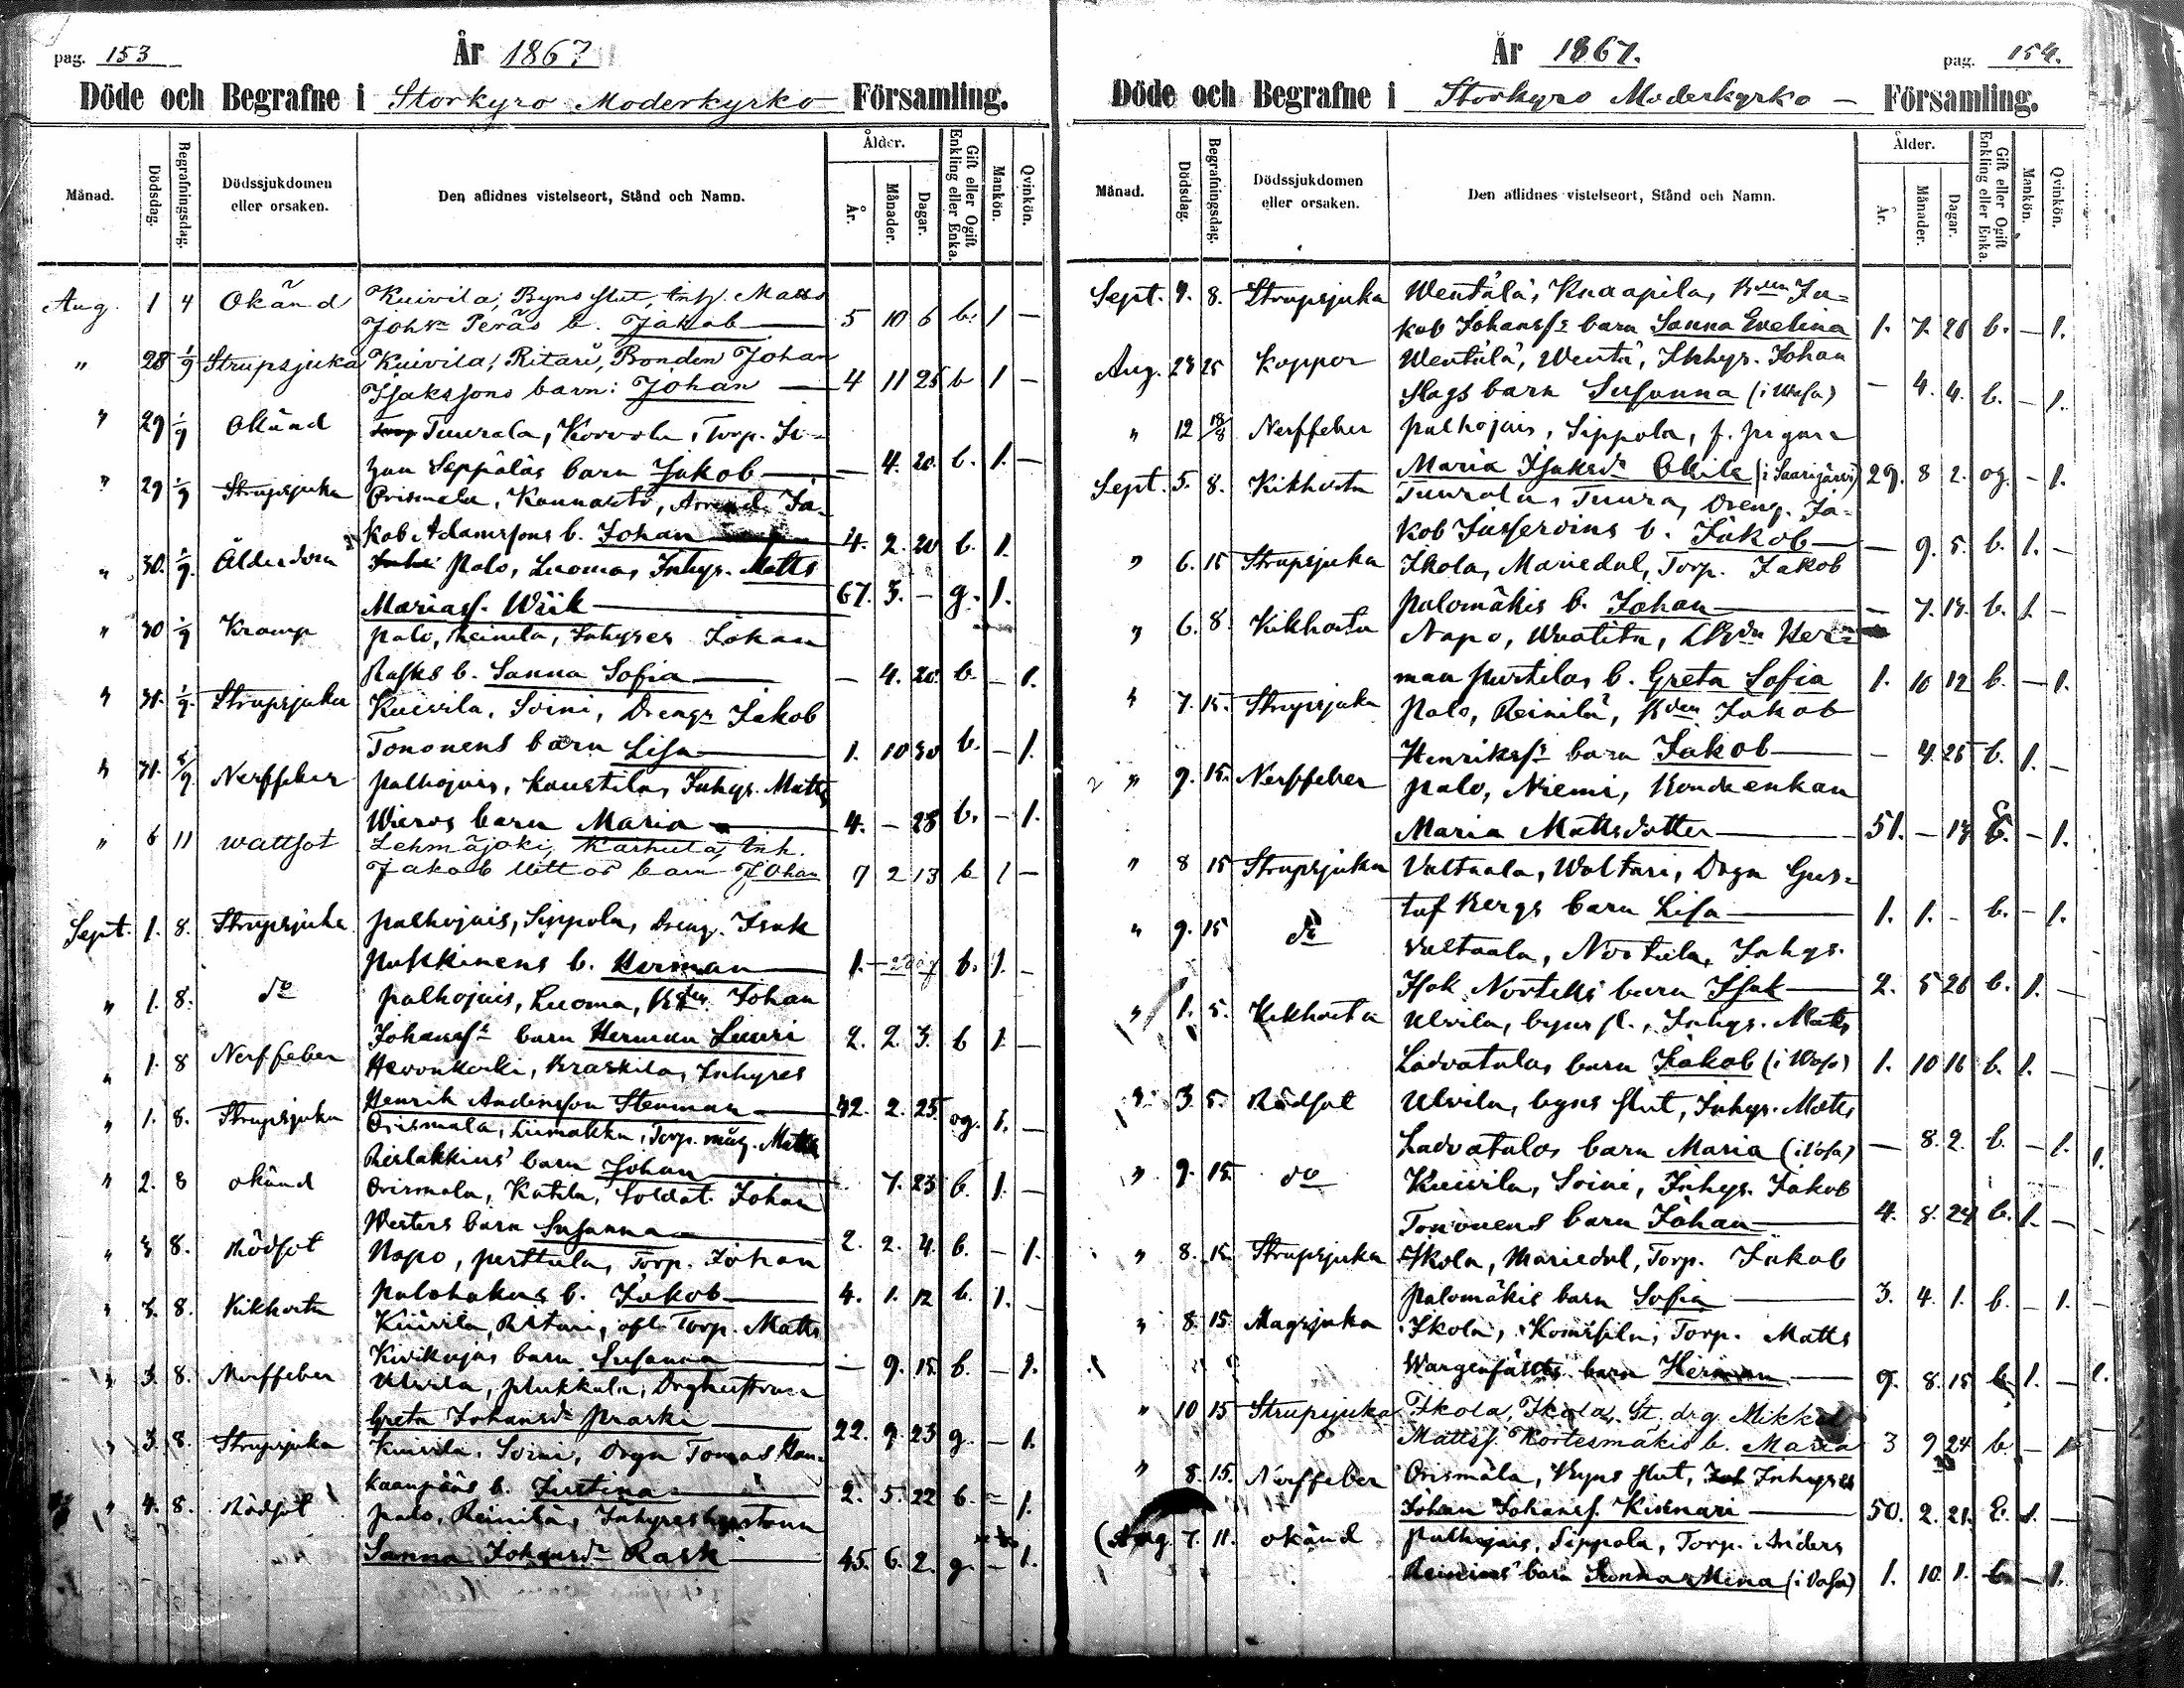 pag. 153
År 1867
Döde och Begrafne i Storkyro Moderkyrko Församling.
Månad. Dödsdag. Begrafningsdag. Dödssjukdomen eller orsaken. Den aflidnes vistelseort, Stånd och Namn. Ålder. År. Månader. Dagar. Gift eller Ogift Enkling eller Enka. Mankön. Qvinkön.
Aug. 1 4 Okänd Kuivila, Byns slut, Inh. Matts
Johs. Peräs b. Jakob 5 10 6 b. 1 —
" 28 1/9 Strupsjuka Kuivila, Ritari, Bonden Johan
Isakssons barn: Johan 4 11 25 b 1 —
" 29 1/9 Okänd Tuurala, Korvola, Torp. Jo-
han Seppäläs barn Jakob — 4. 20. b. 1. —
" 29 1/9 Strupsjuka Orismala, Kannasto, Ja-
kob Adamssons b. Johan 4. 2. 20 b. 1.
" 30. 1/9. Ålderdom Palo, Luoma, Inhys. Matts
Mariass. Wiik 67. 3. — g. 1.
" 30 1/9 Kramp Palo, Reinila, Inhyses Johan
Rasks b. Sanna Sofia — 4. 20. b. — 1.
" 31. 1/9. Strupsjuka Kuivila, Soini, Dreng Jakob
Tononens barn Lisa 1. 10 30 b. — 1.
" 31. 5/9. Nerffeber Palhojais, Kaustila, Inhys. Matts
Wieros barn Maria 4. — 28 b. — 1.
" 6 11 Wattsot Lehmäjoki, Karhula, Inh.
Jakob barn Johan 7 2 13 b 1 —
Sept. 1. 8. Strupsjuka Palhojais, Sippola, Dreng. Isak
Puskkinens b. Herman 1. — b. 1. —
" 1. 8. do Palhojais, Luoma, Bden Johan
Johanss. barn Herman Lauri 2. 2. 3. b 1. —
" 1. 8 Nerffeber Hevonkoski, Kraskila, Inhyses
Henrik Andersson Stenman 42. 2. 25 og. 1. —
" 1. 8. Strupsjuka Orismala, Liimakka, Torp. måg. Matts
barn Johan 7. 23 b. 1. —
" 2. 8 okänd Orismala, Katila, Soldat Johan
Westers barn Susanna 2. 2. 4. b. — 1.
" 3 8. Rödsot Napo, Perttula, Torp. Johan
Palohakas b. Jakob 4. 1. 12 b. 1. —
" 3. 8. Kikhosta Kuivila, Ritari, Torp. Matts
Kivikujas barn Susanna — 9. 15. b. — 1.
" 3. 8. Nerffeber Ulvila, Plukkala, Drghustrun
Greta Johansdr Praski 22. 9. 23 g. — 1.
" 3. 8. Strupsjuka Kuivila, Soini, Drgn Tomas Kan-
kaanpääs b. Justina 2. 5. 22 b. — 1.
" 4. 8. Rödsot Palo, Reinilä, Inhyseshustrun
Sanna Johansdr Rask 45. 6. 2. g. — 1.
År 1867.
pag. 154.
Döde och Begrafne i Storkyro Moderkyrko — Församling.
Månad. Dödsdag. Begrafningsdag. Dödssjukdomen eller orsaken. Den aflidnes vistelseort, Stånd och Namn. Ålder. År. Månader. Dagar. Gift eller Ogift Enkling eller Enka. Mankön. Qvinkön.
Sept. 8. Strupsjuka Wentälä, Knaapila, Bden Ja-
kob Johanss. barn Sanna Evelina 1. 7. 26 b. — 1.
Aug. 23 25 Koppor Wentälä, Wentä, Inhys. Johan
Slags barn Susanna (i Wasa) — 4. 4. b. — 1.
" 12 18/8 Nerffeber Palhojais, Sippola, f. pigan
Maria Isaksdr Okila (i Saarijärvi) 29. 8 2. og. — 1.
Sept. 5. 8. Kikhosta Tuurala, Tuura, Dreng. Ja-
kob b. Jakob — 9. 5. b. 1. —
" 6. 15 Strupsjuka Ikola, Mariedal, Torp. Jakob
Palomäkis b. Johan — 7. 13. b. 1. —
" 6. 8. Kikhosta Napo, Wuatitu, Bdn Her-
man Purtilas b. Greta Sofia 1. 10 12 b. — 1.
" 7. 15. Strupsjuka Palo, Reinilä, Bden Jakob
Henrikss. barn Jakob — 4. 25 b. 1. —
" 9. 15. Nerffeber Palo, Niemi, Bondeenkan
Maria Mattsdotter 51. — 13 E. — 1.
" 8 15 Strupsjuka Valtaala, Waltari, Drgn Gus-
taf Bergs barn Lisa 1. 1. — b. — 1.
" 9. 15 do Valtaala, Nortela, Inhys.
Isak Nortells barn Isak 2. 5 26 b. 1. —
" 1. 5. Kikhosta Ulvila, byns sl., Inhys. Matts
Ladvatalas barn Jakob (i Wasa) 1. 10 16 b. 1. —
" 3. 5. Rödsot Ulvila, byns slut, Inhys. Matts
Ladvatalas barn Maria (i Vasa) — 8. 2. b. — 1.
" 9. 15. do Kuivila, Soini, Inhys. Jakob
Tononens barn Johan 4. 8. 24 b. 1. —
" 8. 15. Strupsjuka Ikola, Mariedal, Torp. Jakob
Palomäkis barn Sofia 3. 4. 1. b. — 1.
" 8. 15. Magsjuka Ikola, Komsila, Torp. Matts
Wargenfälts barn Herman 9. 8. 15 b. 1. —
" 10 15 Strupsjuka Ikola, Ikola, St. drg. Mikkel
Mattss. Kortesmäkis b. Maria 3 9 24 b. — 1
" 8. 15. Nerffeber Orismala, Byns slut, Inhyses
Johan Johanss. Kinnari 50. 2. 21. E. 1. —
(Aug. 7. 11. okänd Palhojais, Sippola, Torp. Anders
barn Sanna Mina (i Vasa) 1. 10. 1. b. — 1.